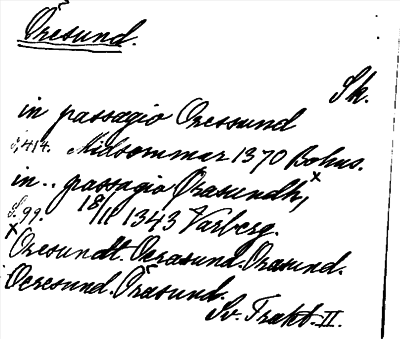 Öresund.
Sk.
in passagio Oressund
s. 414. Midsommar 1370 Bohus.
in .. passagio Ørasundh,x
S. 99. 18/11 1343 Varberg.
x Oresundt. Ocrasund. Orasund.
Ocresund. Örasund.
Sv. Trakt. II.